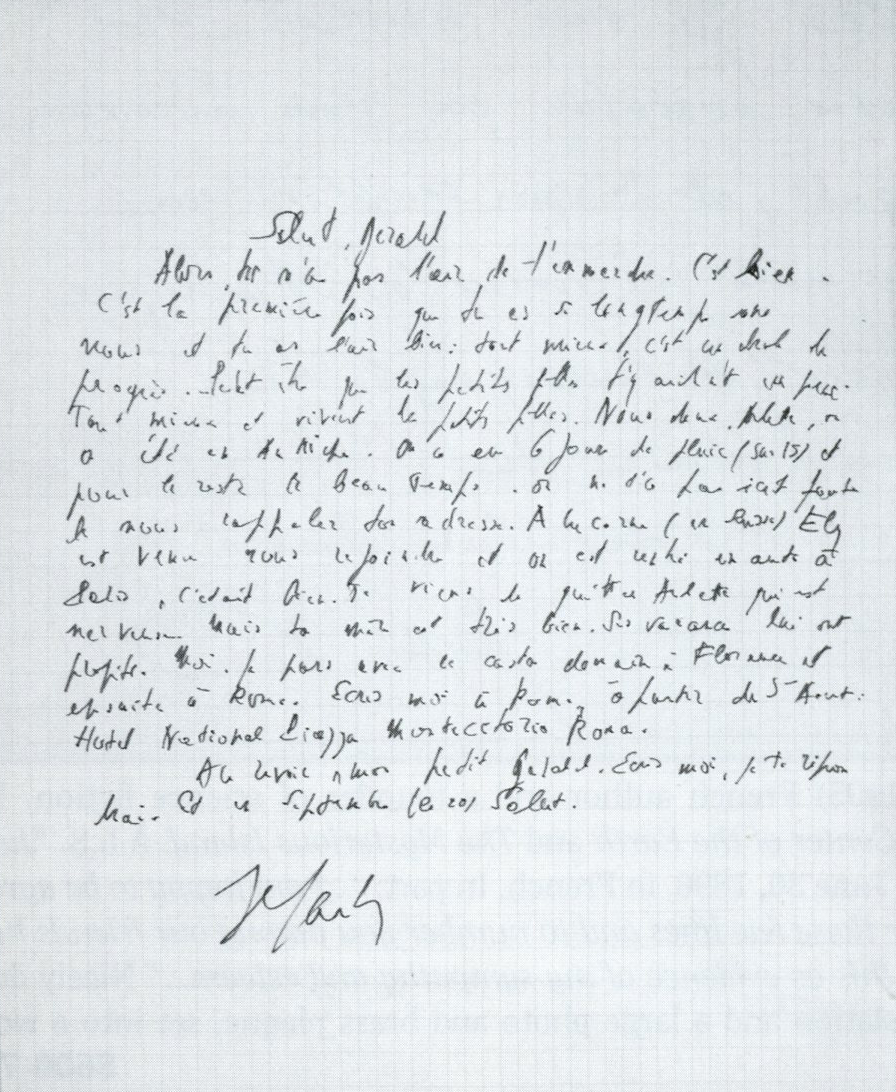 Salut, Gerald
Alors, tu n'as pas l'air de t'emmerder. C'est bien.
C'est la première fois que tu es si longtemps sans
nous et tu as l'air bien: tant mieux, c'est un de
progrès. Peut être que les petites filles t'y aident un peu.
Tant mieux et vivent les petites filles. Nous deux, Arlette, on
a été en Autriche. On a eu 6 jours de pluie (sur 15) et
pour le reste le beau temps. on n'a pas
de nous rappeler ton adresse. A Lucerne (en Suisse) Ely
est venu nous rejoindre et on est rentré en auto à
Paris, c'était bien. Je viens de quitter Arlette qui est
nerveuse mais ta mère est très bien. Ses vacances lui ont
profité. Moi, je pars avec le castor demain à Florence et
ensuite à Rome. Ecris moi à Rome, à partir du 5 Août:
Hotel National Piazza Montecitorio Roma.
Au revoir, mon petit Gerald. Ecris moi, je te répon
drai. Et en Septembre (le 20) Salut.